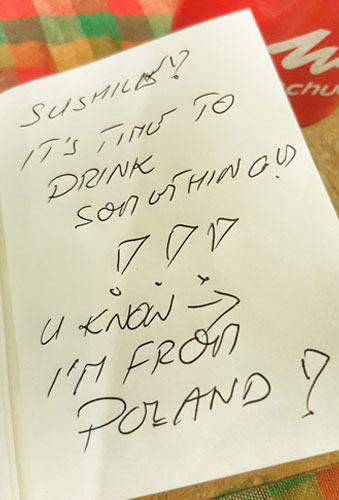 SUSHILA!
IT'S TIME TO
DRINK
SOMETHING!
! ! !
U KNOW →
I'M FROM
POLAND!